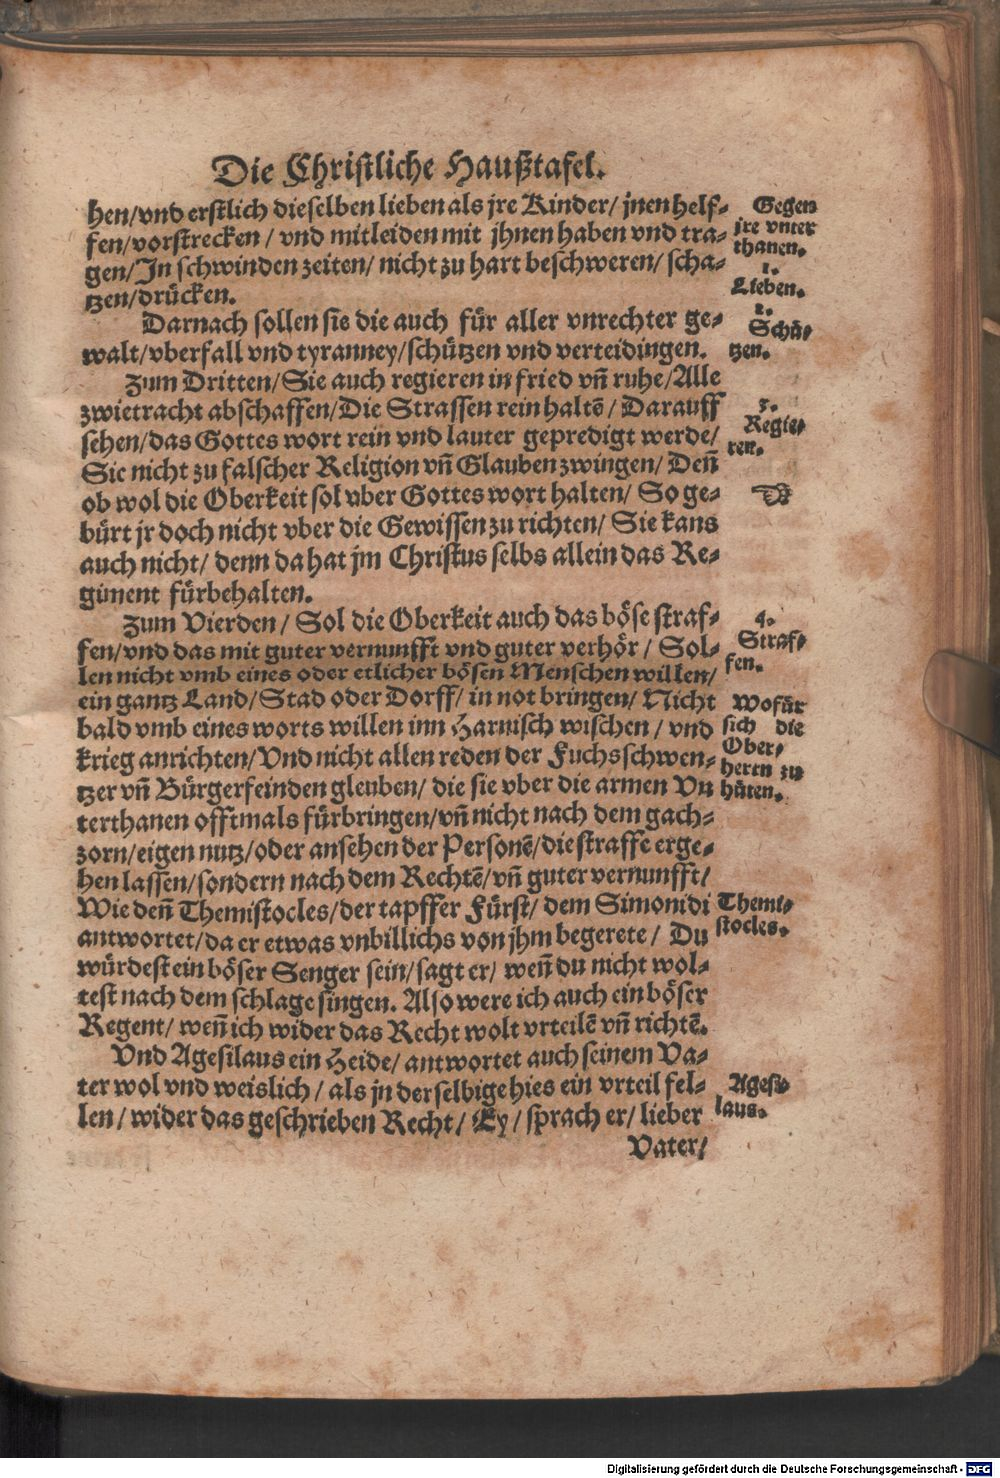 Die Christliche Haußtafel.
hen/vnd erstlich dieselben lieben als jre Kinder/ jnen helf-
fen/vorstrecken/ vnd mitleiden mit jhnen haben vnd tra-
gen/In schwinden zeiten/ nicht zu hart beschweren/ scha-
tzen/drücken.
Darnach sollen sie die auch für aller vnrechter ge-
walt/vberfall vnd tyranney/schützen vnd verteidingen.
Zum Dritten/Sie auch regieren in fried vñ ruhe/Alle
zwietracht abschaffen/Die Strassen rein haltē/ Darauff
sehen/das Gottes wort rein vnd lauter gepredigt werde/
Sie nicht zu falscher Religion vñ Glauben zwingen/ Deñ
ob wol die Oberkeit sol vber Gottes wort halten/ So ge-
bürt jr doch nicht vber die Gewissen zu richten/ Sie kans
auch nicht/ denn da hat jm Christus selbs allein das Re-
giment fürbehalten.
Zum Vierden/ Sol die Oberkeit auch das böse straf-
fen/vnd das mit guter vernunfft vnd guter verhör/ Sol-
len nicht vmb eines oder etlicher bösen Menschen willen/
ein gantz Land/ Stad oder Dorff/ in not bringen/ Nicht
bald vmb eines worts willen inn Harnisch wischen/ vnd
krieg anrichten/Vnd nicht allen reden der Fuchsschwen-
tzer vñ Bürgerfeinden gleuben/ die sie vber die armen Vn
terthanen offtmals fürbringen/vñ nicht nach dem gach-
zorn/eigen nutz/oder ansehen der Personē/die straffe erge-
hen lassen/sondern nach dem Rechtē/vñ guter vernunfft/
Wie deñ Themistocles/der tapffer Fürst/ dem Simonidi
antwortet/da er etwas vnbillichs von jhm begerete/ Du
würdest ein böser Senger sein/sagt er/ weñ du nicht wol-
test nach dem schlage singen. Also were ich auch ein böser
Regent/ weñ ich wider das Recht wolt vrteilē vñ richtē.
Vnd Agesilaus ein Heide/ antwortet auch seinem Va-
ter wol vnd weislich/ als jn derselbige hies ein vrteil fel-
len/ wider das geschrieben Recht/ Ey/ sprach er/ lieber
Vater/
Gegen
jre vnter
thanen.
1.
Lieben.
2.
Schü-
tzen.
3.
Regie-
ren.
4.
Straf-
fen.
Wofür
sich die
Ober-
herrn zu
hüten.
Themi-
stocles.
Agesi-
laus.
Digitalisierung gefördert durch die Deutsche Forschungsgemeinschaft - DFG